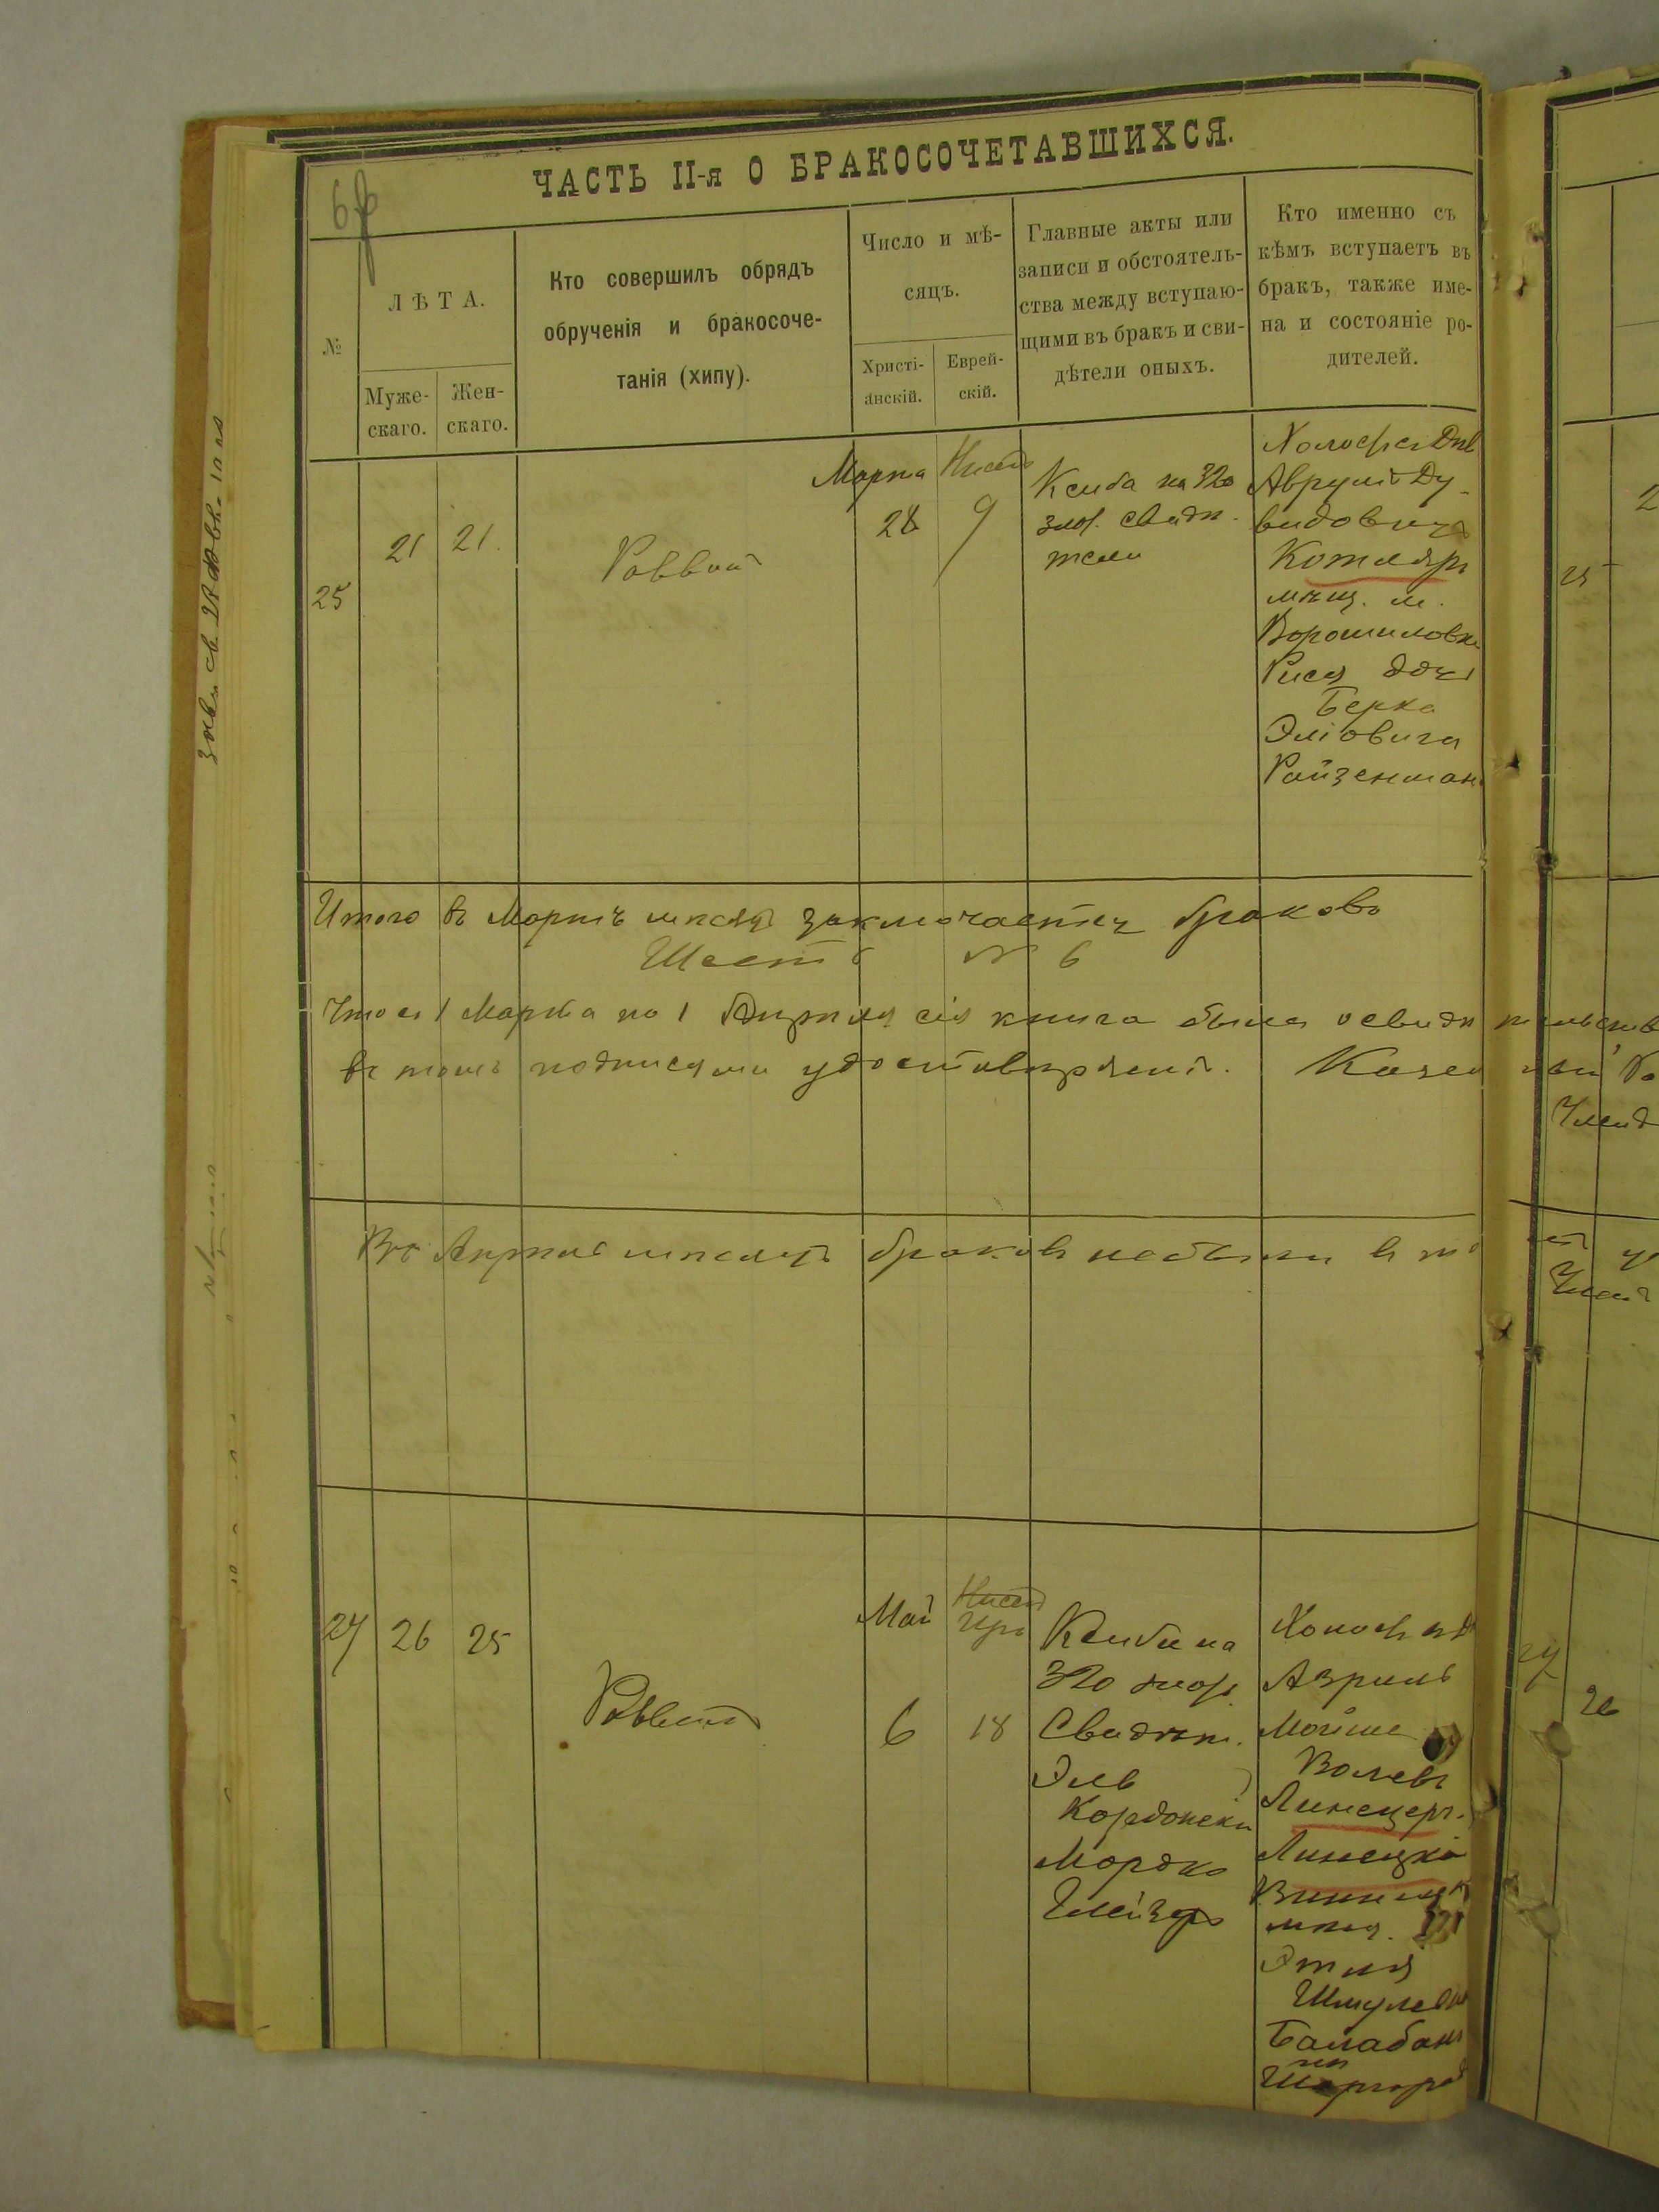 ЧАСТЬ II-я О БРАКОСОЧЕТАВШИХСЯ.
№
ЛѢТА.
Муже-
скаго.
Жен-
скаго.
Кто совершилъ обрядъ
обрученія и бракосоче-
танія (хипу).
Число и мѣ-
сяцъ.
Христі-
анскій.
Еврей-
скій.
Главные акты или
записи и обстоятель-
ства между вступаю-
щими въ бракъ и сви-
дѣтели оныхъ.
Кто именно съ
кѣмъ вступаетъ въ
бракъ, также име-
на и состояніе ро-
дителей.
25
21
21
Раввинъ
Марта
28
9
на 320
злот. свидѣ
тели
Аврумъ Ду-
видовичъ
Котляръ
мѣщ. м.
Ворошиловки
Рися дочь
Берка
Эліовича
Ройзенман
Итого въ Мартѣ мѣсяцѣ заключается браковъ
Шесть № 6
Что съ 1 Марта по 1 Апрѣля сія книга была освидѣтельств
въ томъ подписями удостовѣряемъ.
Въ Апрѣлѣ мѣсяцѣ браковъ небыли в то
26
25
Раввинъ
Май
Иръ
6
18
на
320 злот.
Свидѣт.
Эль
Кордонски
Мордко
Азриль
Мойше
Волевъ
Линецеръ
Линецкій
Этля
Шмулевна
Балабанъ
Шаргород
25
26